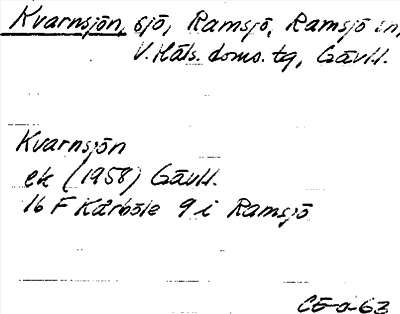 Kvarnsjön, sjö, Ramsjö, Ramsjö sn,
V. Häls. doms. tg, Gävll.
Kvarnsjön
ek (1958) Gävll.
16 F Kårböle 9 i Ramsjö
CÖ-a-63